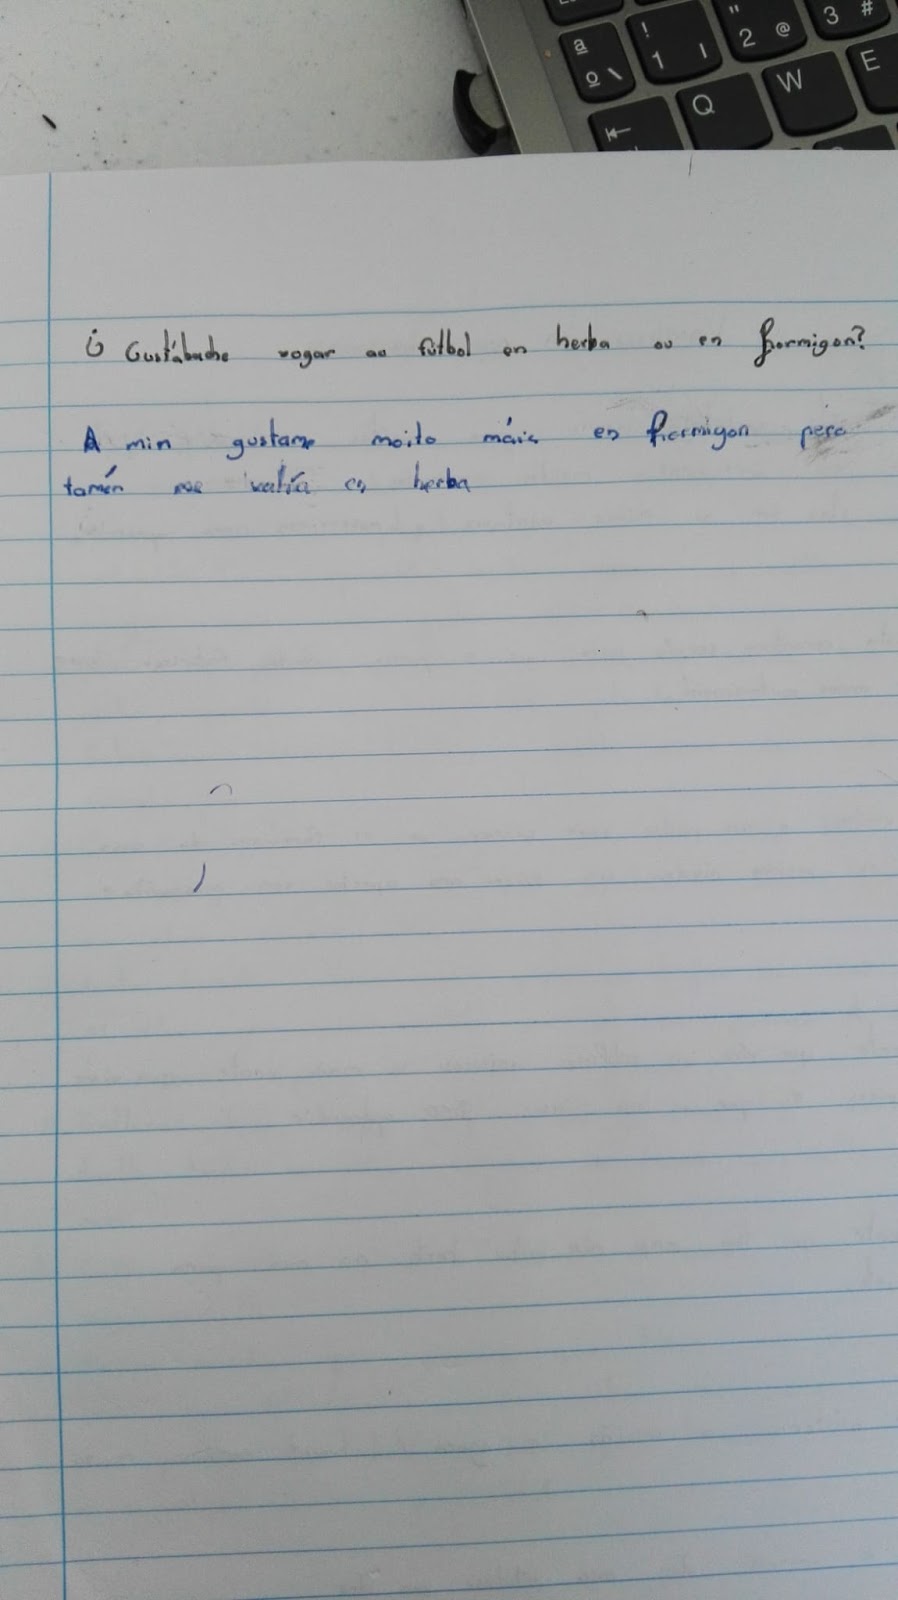 ª ! " 3 #
º \ 1 | 2 @ E
Q W
¿ Gustábache xogar ao fútbol en herba ou en formigon?
A min gustame moito máis en formigon pero
tamén me valía en herba